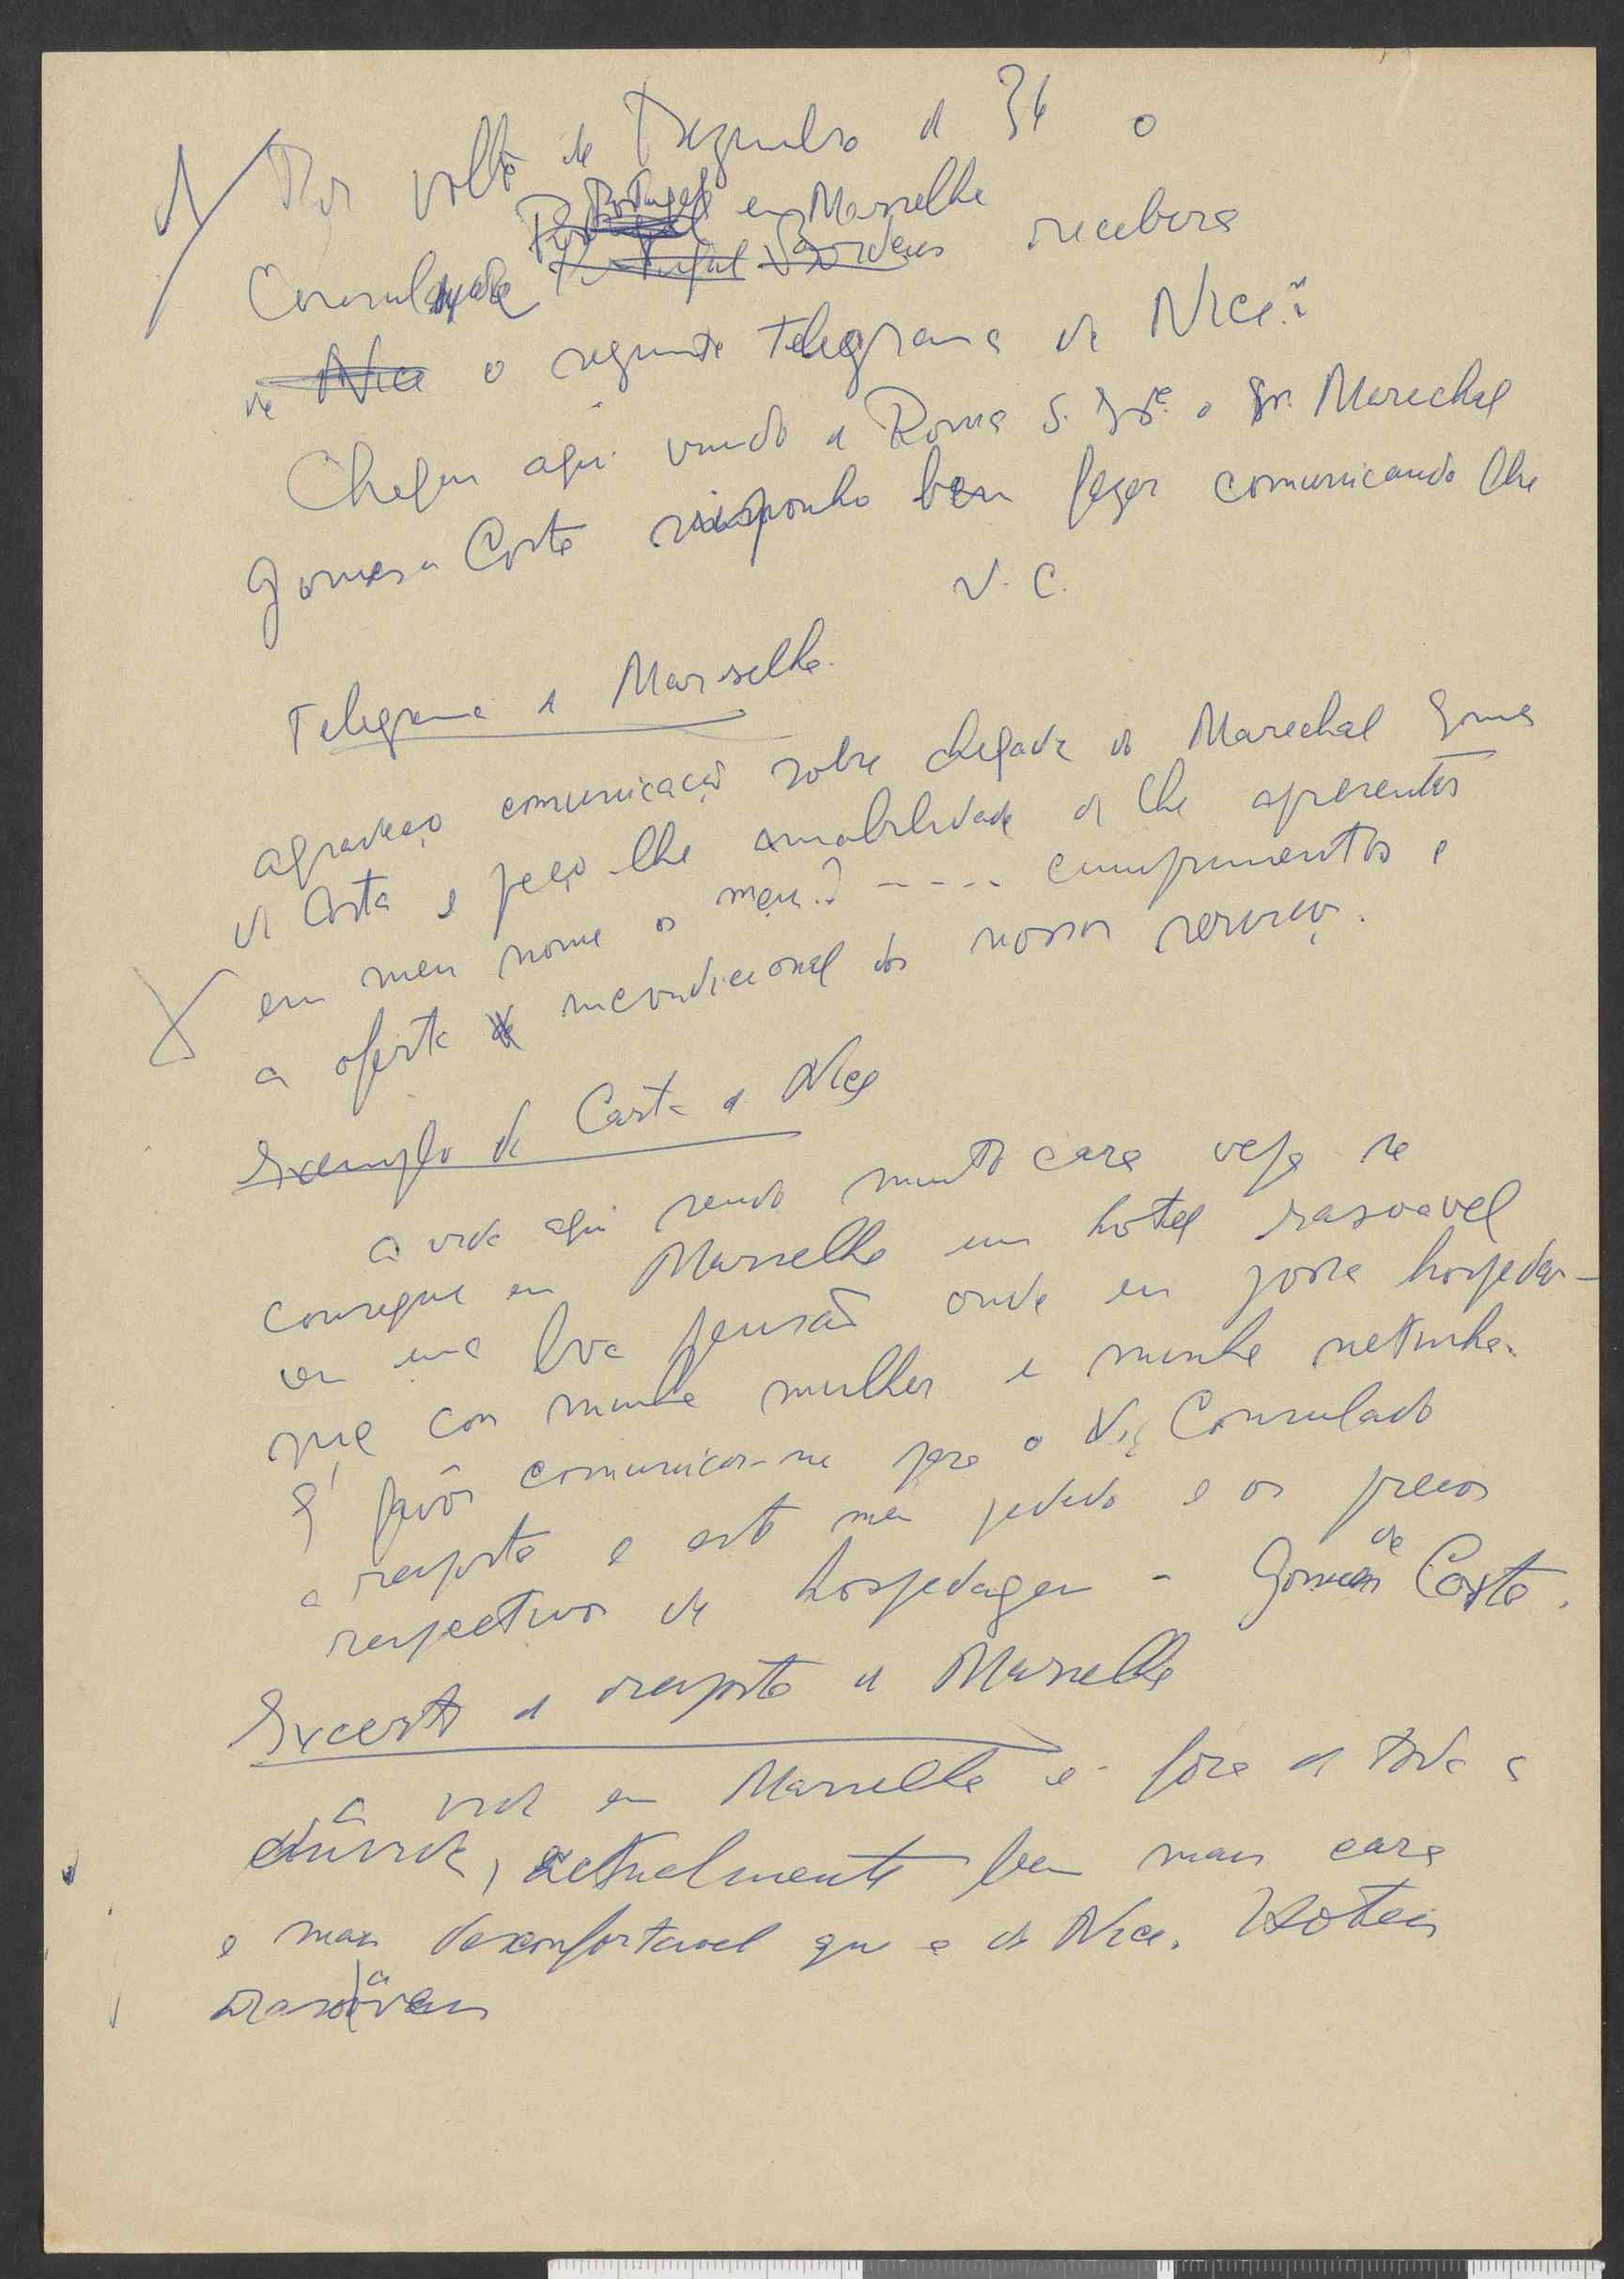 Por volta de Dezembro de 36 o
Consulado de Portugal em Marselha recebera
de Nice o seguinte telegrama de Nice:
Chegou aqui vindo de Roma S. Exª. o Sr. Marechal
Gomes a Costa suponho bem fazer comunicando lhe
V. C.
Telegrama de Marselha.
agradeço comunicação sobre chegada do Marechal Gomes
da Costa e peço-lhe amabilidade de lhe apresentar
em meu nome os meus? ----- cumprimentos e
a oferta incondicional dos nossos serviços.
Exemplo de Carta de Nice
A vida aqui sendo muito cara veja se
consegue em Marselha um hotel rasoavel
ou uma boa pensão onde eu possa hospedar-
me com minha mulher e minha netinha.
É favôr comunicar-me para o V. Consulado
a resposta a este meu pedido e os preços
respectivos de hospedagem - Gomes da Costa.
Excerto de resposta de Marselha
A vida em Marselha é fora de toda a
dúvida, actualmente bem mais cara
e mais desconfortavel que a de Nice. Hoteis
rasoáveis